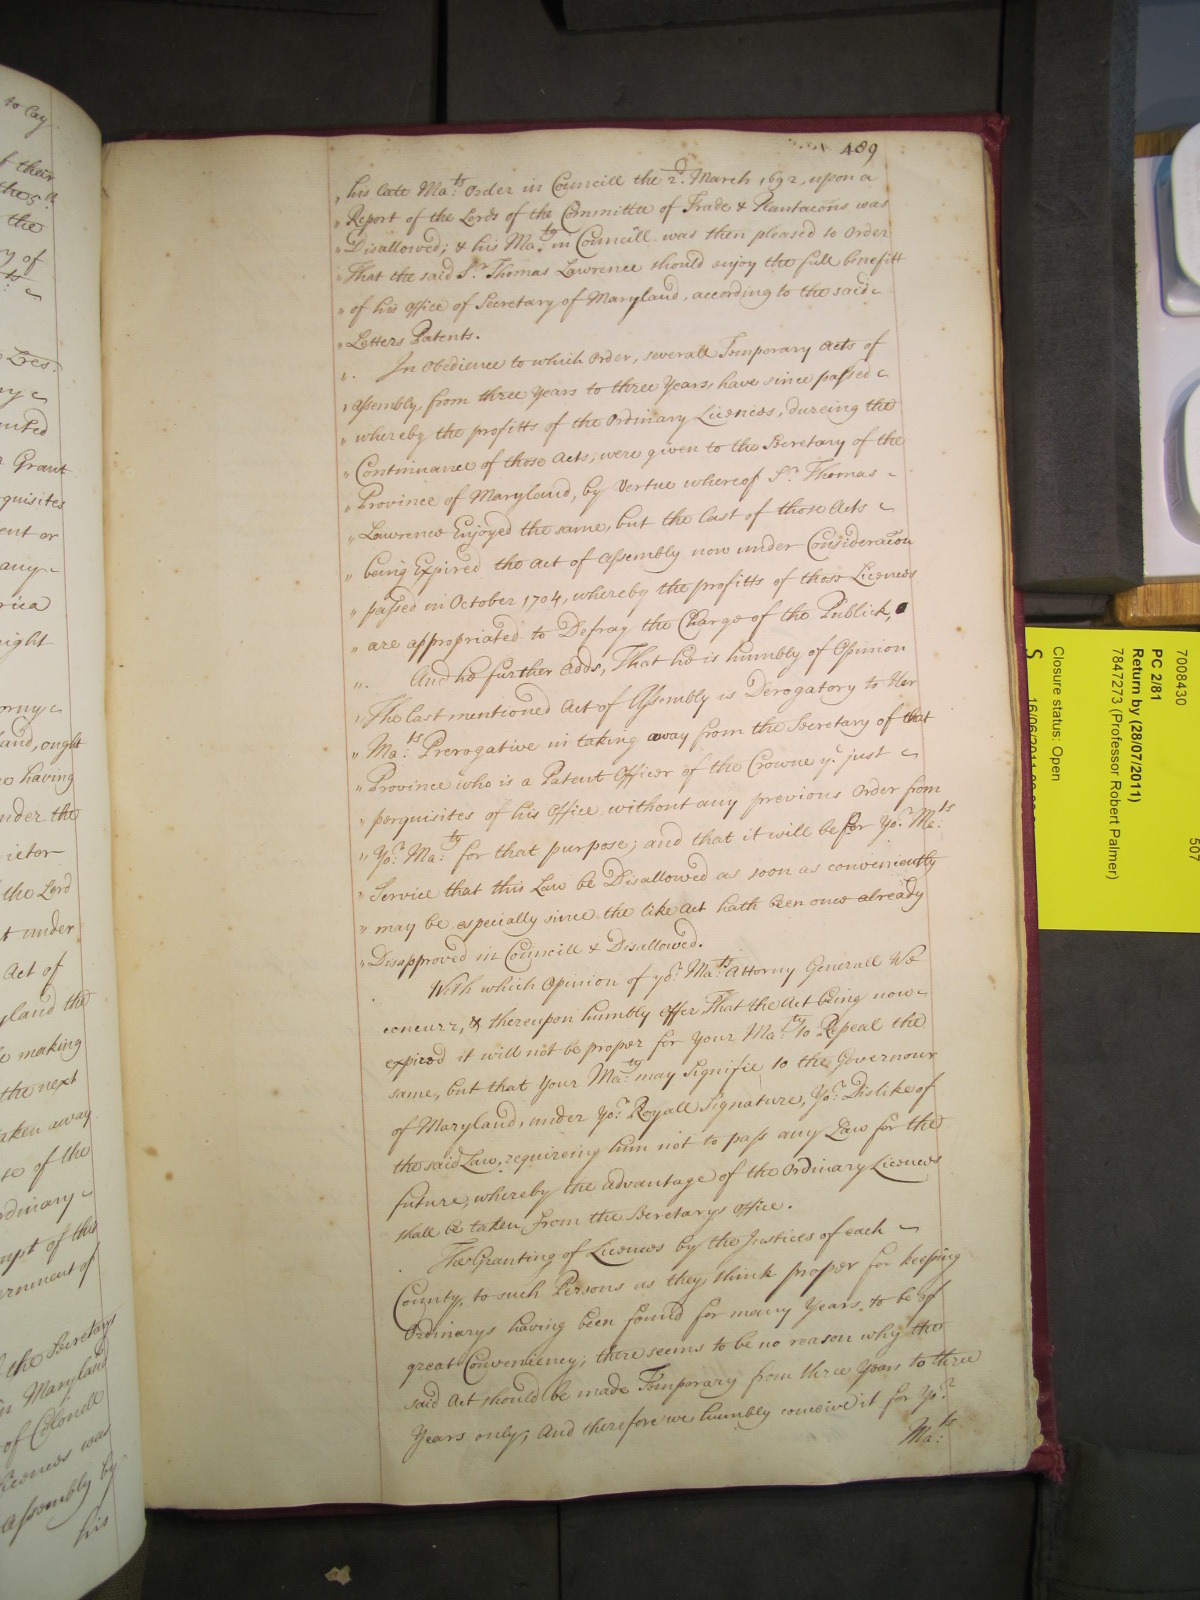 to lay
f their
the
y of
ny
nted
r Grant
quisites
ent or
any
rica
right
orny
land, ought
o having
nder the
ietor
the Lord
t under
Act of
yland the
e making
the next
aken away
se of the
rdinary
mpt of this
ernment of
the Secretarys
in Maryland
of Colonell
Licences was
Assembly by
his
489
„ his late Ma:ts Order in Councill the 2d. March 1692, upon a
„ Report of the Lords of the Committee of Trade & Plantacons was
„ Disallowed; & his Ma:ty in Councill was then pleased to Order
„ That the said Sr. Thomas Lawrence should enjoy the full benefitt
„ of his Office of Secretary of Maryland, according to the said
„ Letters Patents.
„ In Obedience to which Order, severall Temporary Acts of
„ Assembly, from three Years to three Years, have since passed
„ whereby the profitts of the Ordinary Licences, dureing the
„ Continuance of those Acts, were given to the Secretary of the
„ Province of Maryland, by Vertue whereof Sr. Thomas
„ Lawrence Enjoyed the same, but the last of those Acts
„ being Expired the Act of Assembly now under Consideracon
„ passed in October 1704, whereby the profitts of those Licences
„ are appropriated to Defray the Charge of the Publick,
„ And he further adds, That he is humbly of Opinion
„ The last mentioned Act of Assembly is Derogatory to Her
„ Ma:ts Prerogative in taking away from the Secretary of that
„ Province who is a Patent Officer of the Crowne ye. just
„ perquisites of his Office, without any previous Order from
„ Yor. Ma:ty for that purpose; and that it will be for Yor. Ma:ts
„ Service that this Law be Disallowed as soon as conveniently
„ may be, especially since the like Act hath been once already
„ Disapproved in Councill & Disallowed.
With which Opinion of yor. Ma:ts Attorny Generall We
concurr, & thereupon humbly Offer That the Act being now
expired it will not be proper for Your Ma:ty to Repeal the
same, but that Your Ma:ty may Signifie to the Governour
of Maryland, under Yor. Royall Signature, Yor. Dislike of
the said Law, requireing him not to pass any Law for the
future, whereby the advantage of the Ordinary Licences
shall be taken from the Secretarys Office.
The Granting of Licences by the Justices of each
County, to such Persons as they think proper for keeping
Ordinarys having been found for many Years, to be of
great Conveniency; there seems to be no reason why the
said Act should be made Temporary from three Years to three
Years only; And therefore we humbly conceive it for Yor.
Ma:ts
7008430
507
PC 2/81
Return by (28/07/2011)
7847273 (Professor Robert Palmer)
Closure status: Open
S